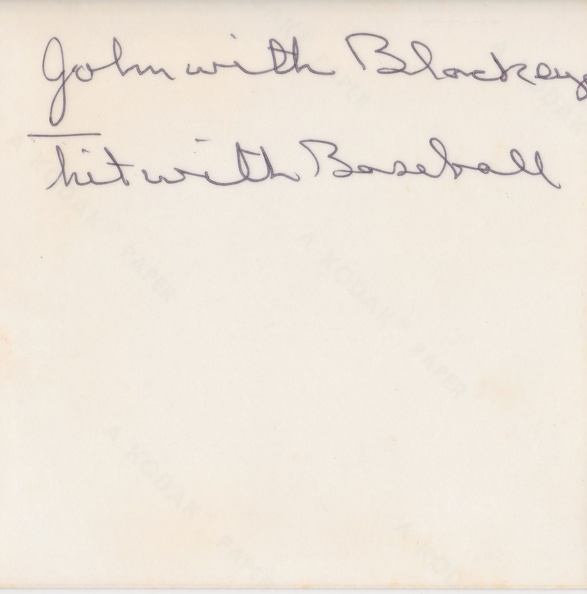 John with Blackey
hit with Baseball
A KODAK PAPER
A KODAK PAPER
A KODAK PAPER